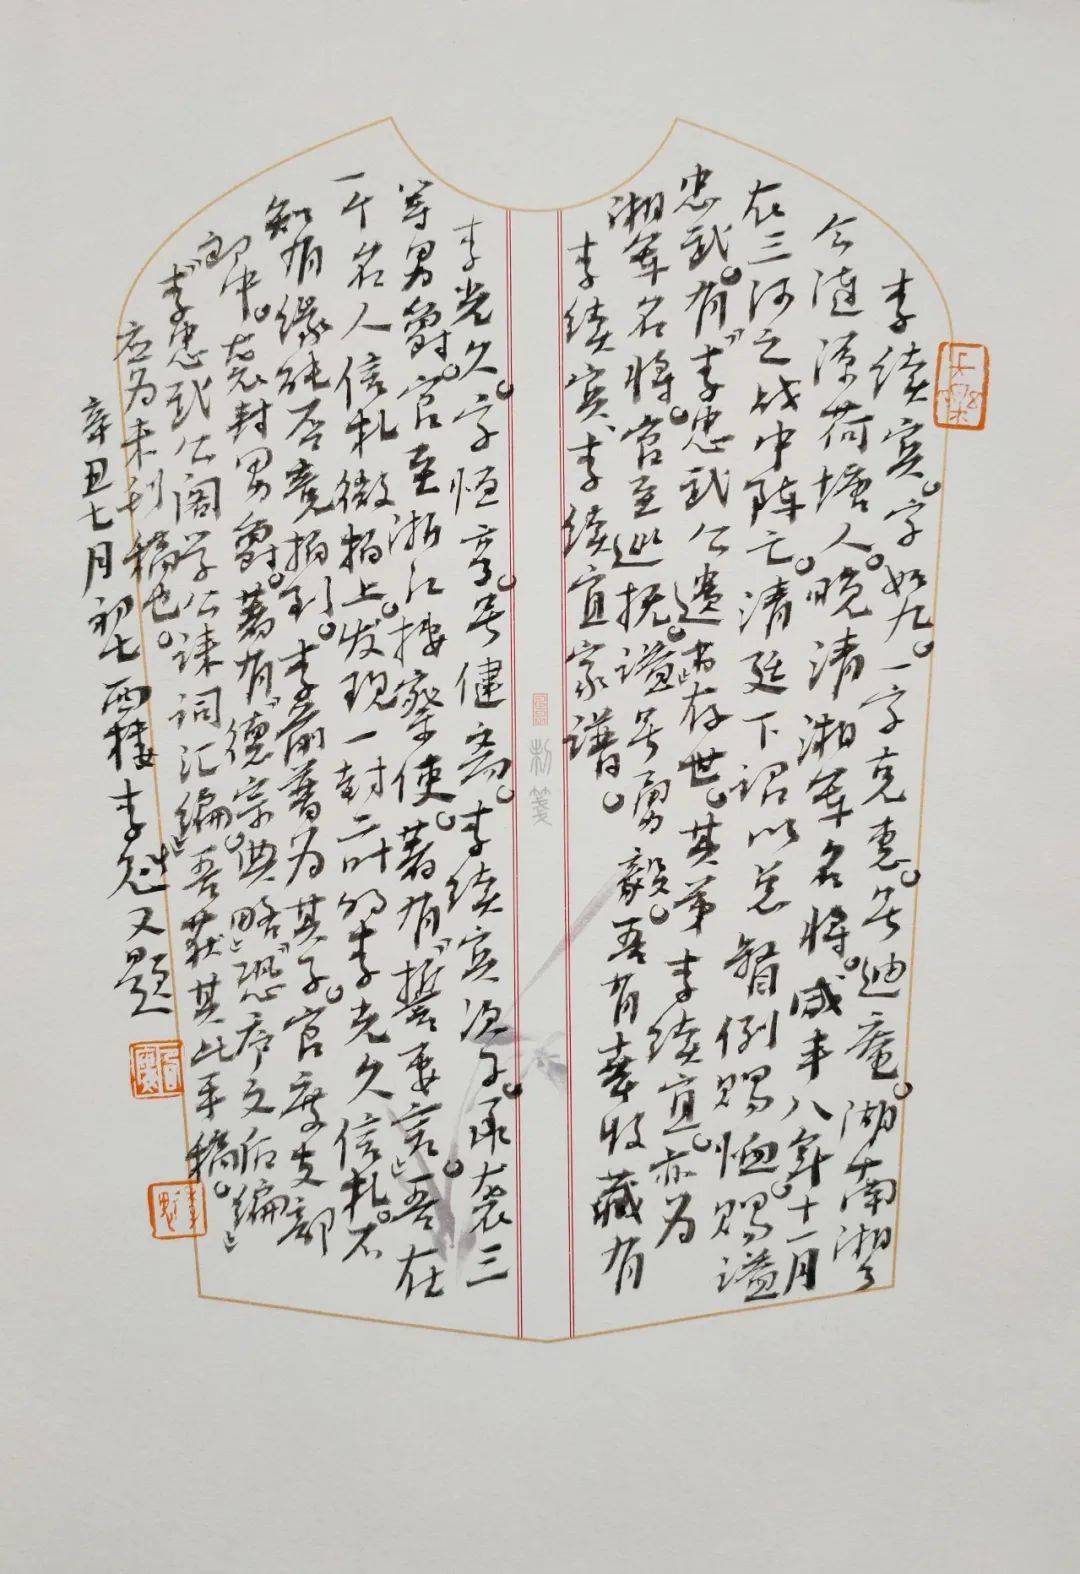 李续宾。字如九。一字克惠。号迪庵。湖南湘乡
今涟源荷塘人。晚清湘军名将。咸丰八年十一月
在三河之战中阵亡。清廷下诏以总督例赐恤。赐谥
忠武。有『李忠武公遗书』存世。其弟李续宜。亦为
湘军名将。官至巡抚。谥号勇毅。吾有幸收藏有
李续宾、李续宜家谱。
李光久。字恒亭。号健斋。李续宾次子。承袭三
等男爵。官至浙江按察使。著有『誓要言』。吾在
一个名人信札微拍上。发现一封二叶的李光久信札。不
知有缘能否竞拍到。李前普为其子。官度支部
郎中。袭封男爵。著有『德宗典略』『恐序文后编』
『李忠武公阁学公诔词汇编』。吾获其此手稿。
应为未刊稿也。
辛丑七月初七西楼李勉又题
制笺